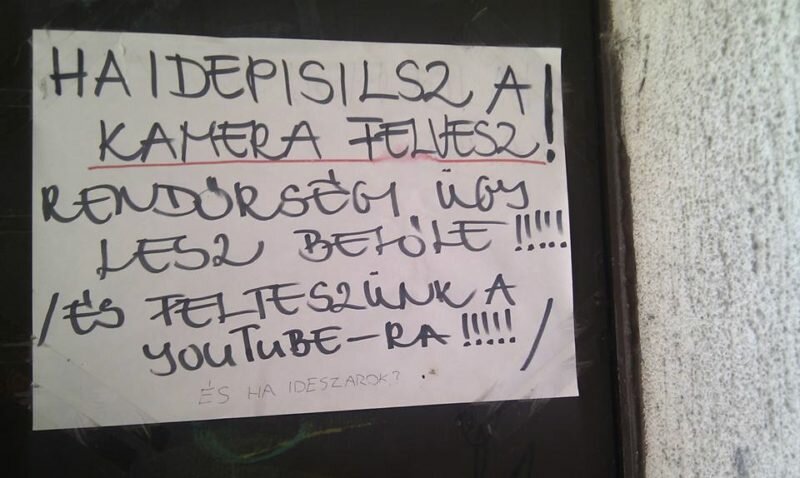 HA IDEPISILSZ A!
KAMERA FELVESZ
RENDŐRSÉGI ÜGY
LESZ BELŐLE !!!!!
/ÉS FELTESZÜNK A
YOUTUBE-RA !!!!! /
ÉS HA IDESZAROK?